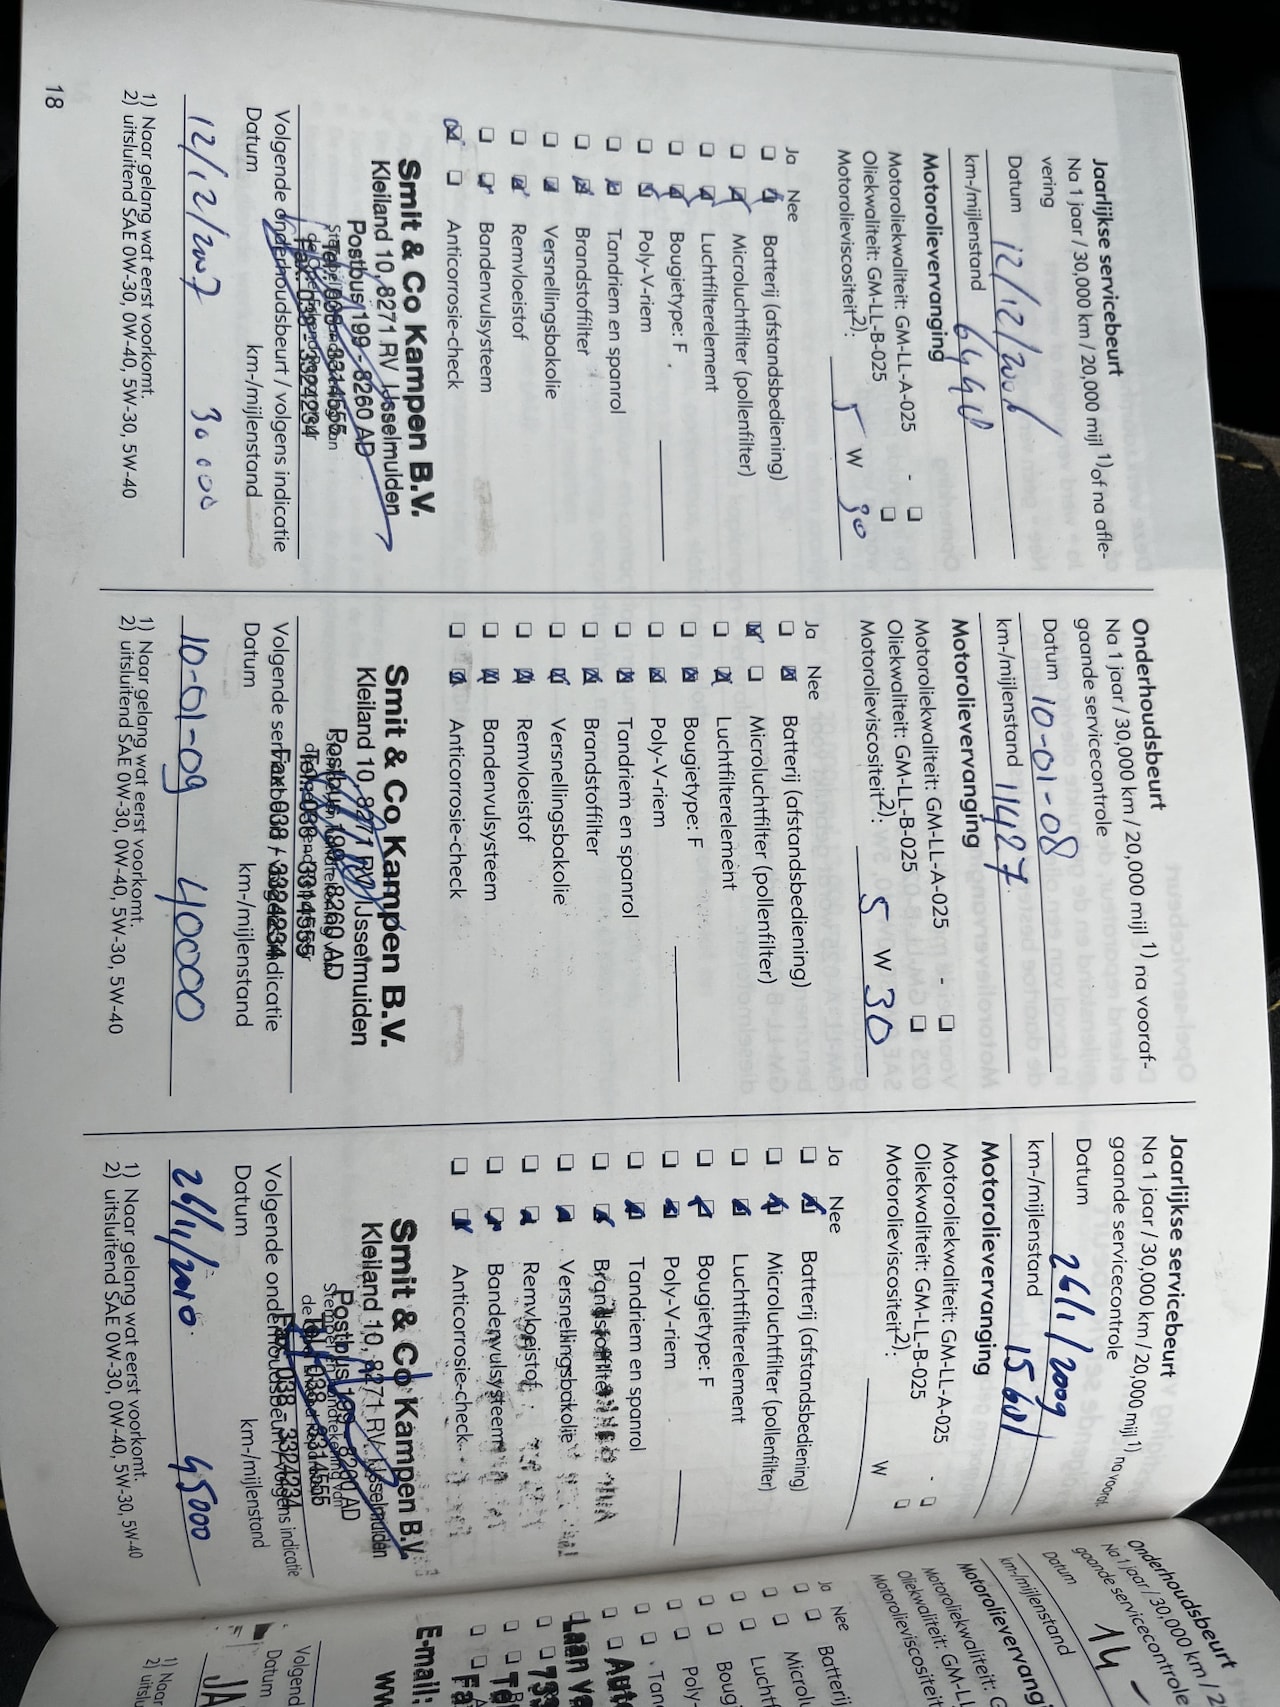 Jaarlijkse servicebeurt
Na 1 jaar / 30,000 km / 20,000 mijl 1) of na afle-
vering
Datum 12/12/2006
km-/mijlenstand
Motorolievervanging
Motoroliekwaliteit: GM-LL-A-025 -
Oliekwaliteit: GM-LL-B-025
Motorolieviscositeit2): 5 W 30
Ja Nee
Batterij (afstandsbediening)
Microluchtfilter (pollenfilter)
Luchtfilterelement
Bougietype: F
Poly-V-riem
Tandriem en spanrol
Brandstoffilter
Versnellingsbakolie
Remvloeistof
Bandenvulsysteem
Anticorrosie-check
Smit & Co Kampen B.V.
Kleiland 10, 8271 RV IJsselmuiden
Postbus 199 - 8260 AD
Tel. 038 - 3314555
Fax. 038 - 3324234
Volgende onderhoudsbeurt / volgens indicatie
Datum km-/mijlenstand
12/12/2007 30000
1) Naar gelang wat eerst voorkomt.
2) uitsluitend SAE 0W-30, 0W-40, 5W-30, 5W-40
18
Onderhoudsbeurt
Na 1 jaar / 30,000 km / 20,000 mijl 1) na vooraf-
gaande servicecontrole
Datum 10-01-08
km-/mijlenstand 11427
Motorolievervanging
Motoroliekwaliteit: GM-LL-A-025 -
Oliekwaliteit: GM-LL-B-025
Motorolieviscositeit2): 5 W 30
Ja Nee
Batterij (afstandsbediening)
Microluchtfilter (pollenfilter)
Luchtfilterelement
Bougietype: F
Poly-V-riem
Tandriem en spanrol
Brandstoffilter
Versnellingsbakolie
Remvloeistof
Bandenvulsysteem
Anticorrosie-check
Smit & Co Kampen B.V.
Kleiland 10, 8271 RV IJsselmuiden
Postbus 199 - 8260 AD
Tel. 038 - 3314555
Fax. 038 - 3324234
Datum km-/mijlenstand
10-01-09 40000
1) Naar gelang wat eerst voorkomt.
2) uitsluitend SAE 0W-30, 0W-40, 5W-30, 5W-40
Jaarlijkse servicebeurt
Na 1 jaar / 30,000 km / 20,000 mijl 1) na vooraf-
gaande servicecontrole
Datum 26/1/2009
km-/mijlenstand
Motorolievervanging
Motoroliekwaliteit: GM-LL-A-025 -
Oliekwaliteit: GM-LL-B-025
Motorolieviscositeit2): W
Ja Nee
Batterij (afstandsbediening)
Microluchtfilter (pollenfilter)
Luchtfilterelement
Bougietype: F
Poly-V-riem
Tandriem en spanrol
Brandstoffilter
Versnellingsbakolie
Remvloeistof
Bandenvulsysteem
Anticorrosie-check
Smit & Co Kampen B.V.
Kleiland 10, 8271 RV IJsselmuiden
Postbus 199 - 8260 AD
Tel. 038 - 3314555
Fax. 038 - 3324234
Volgende onderhoudsbeurt / volgens indicatie
Datum km-/mijlenstand
26/1/2010 45000
1) Naar gelang wat eerst voorkomt.
2) uitsluitend SAE 0W-30, 0W-40, 5W-30, 5W-40
Onderhoudsbeurt
Na 1 jaar / 30,000 km / 2
gaande servicecontrole
Datum 14 -
km-/mijlenstand
Motorolievervangi
Motoroliekwaliteit: G
Oliekwaliteit: GM-L
Motorolieviscositei
Ja Nee
Batterij
Microlu
Luchtf
Boug
Poly-
Tan
Aut
Laan va
733
Te
Fa
E-mail:
ww
Volgend
Datum
JA
1) Naar
2) uitslu